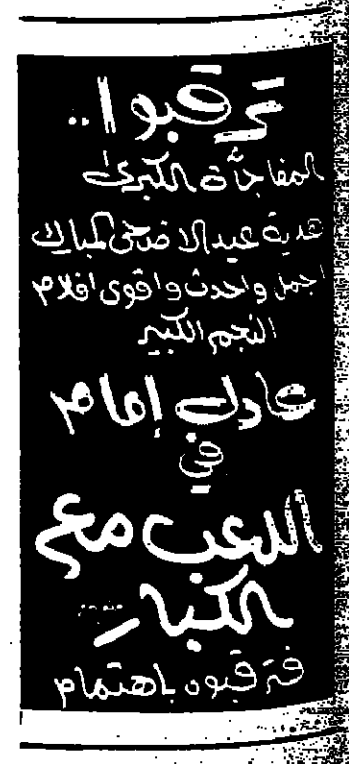 ترقبوا..
المفاجأة الكبرى
هدية عيد الاضحى المبارك
اجمل واحدث واقوى افلام
النجم الكبير
عادل إمام
في
اللعب مع
الكبار
فترقبوه باهتمام